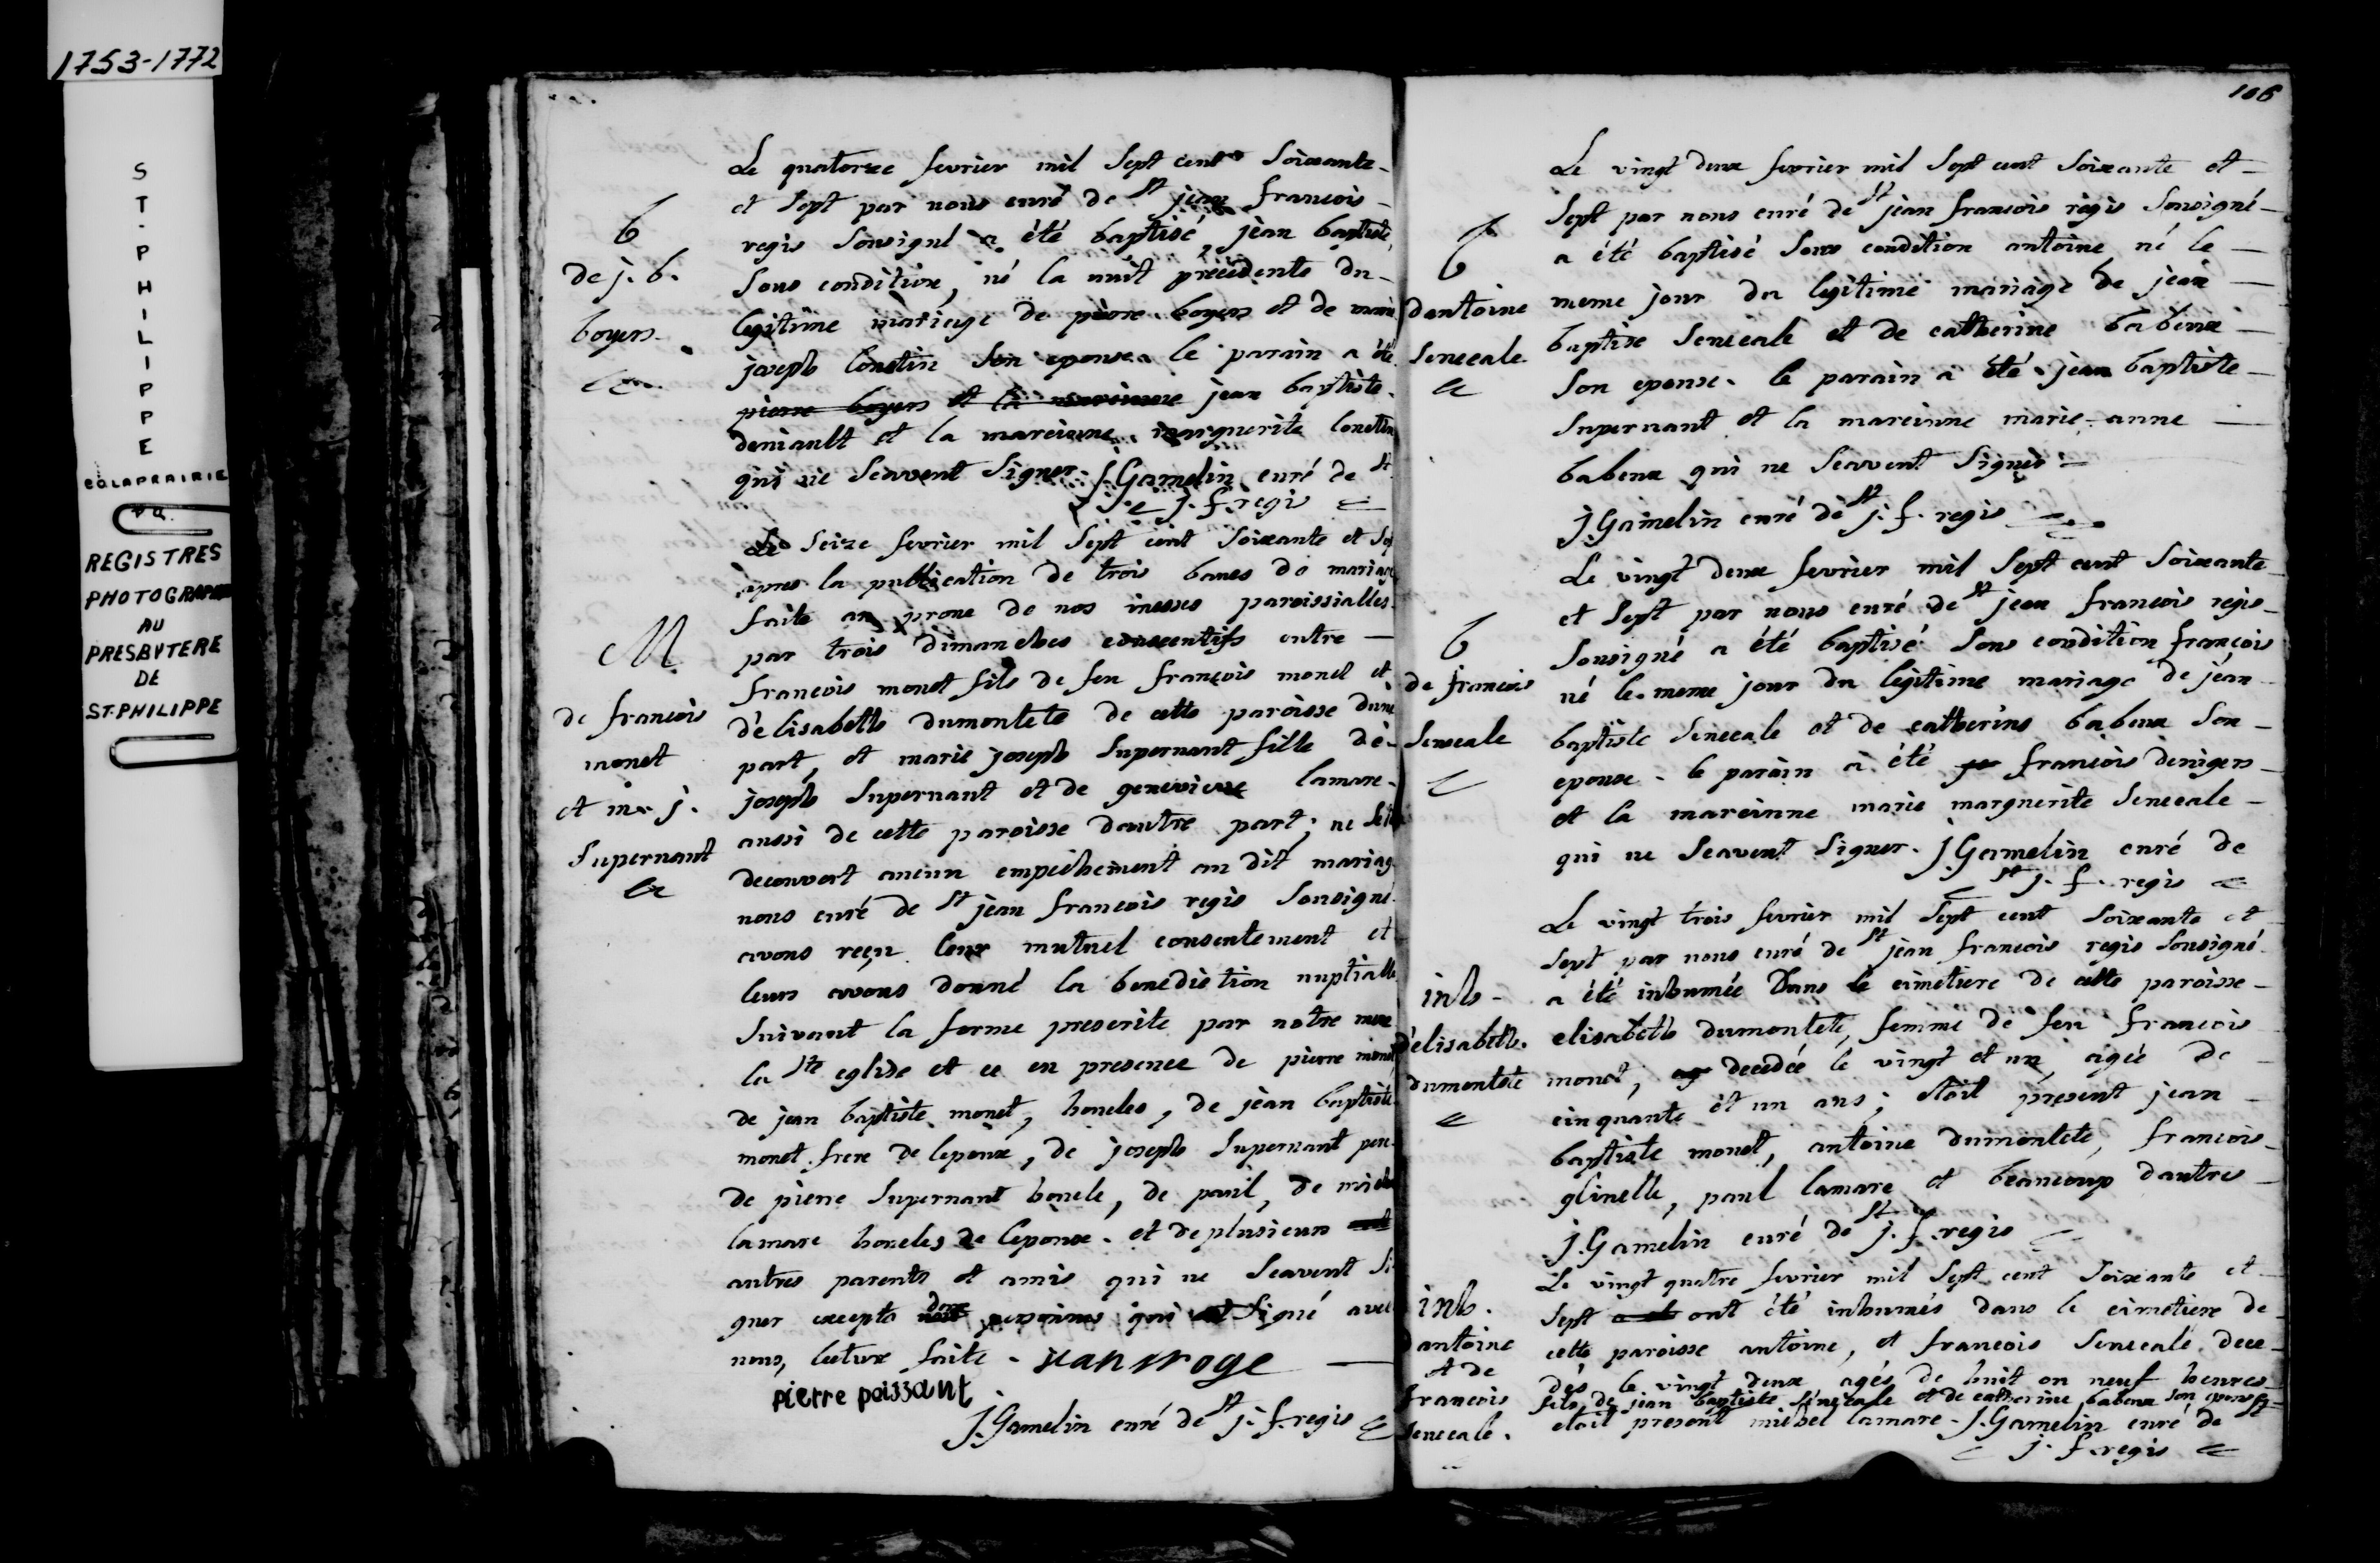 1753-1772
ST. PHILIPPE
CO LAPRAIRIE
REGISTRES
PHOTOGRAPHIÉS
AU
PRESBYTERE
DE
ST-PHILIPPE
b
de j. b.
boyer
Le quatorze fevrier mil Sept cent Soixante
et Sept par nous curé de St jean francois
regis Sousigné a été baptisé jean baptiste
Sous condition, né la nuit précédente du
legitime mariage de pierre boyer et de marie
joseph lonctin Son epouse le parain a été
pierre boyer et la mareinne jean baptiste
deniault et la mareinne marguerite lonctin
qui ne Scavent Signer. j. Gamelin curé de St
j. f. regis
M
de francois
monet
et m. j.
Supernant
Le Seize fevrier mil Sept cent Soixante et Sept
apres la publication de trois bancs de mariage
faite au prone de nos messes paroissialles
par trois dimanches consecutifs entre
francois monet fils de feu francois monet et
d'elisabeth dumontete de cette paroisse dune
part, et marie joseph Supernant fille de
joseph Supernant et de genevieve lamare
aussi de cette paroisse dautre part; ne
decouvert aucun empechement au dit mariage
nous curé de St jean francois regis Sousigné
avons reçu leur mutuel consentement et
leurs avons donné la benediction nuptialle
Suivant la forme prescrite par notre mere
la Ste eglise et ce en presence de pierre monet
de jean baptiste monet, honcles, de jean baptiste
monet frere de lepoux, de joseph Supernant pere
de pierre Supernant honcle, de paul, de michel
lamare honcles de lepouse. et de plusieurs
autres parents et amis qui ne Scavent Si
gner excepté deux personnes qui ont Signé avec
nous, lecture faite.
pierre poissant
j. Gamelin curé de St j. f. regis
106
b
dantoine
Senecale
Le vingt deux fevrier mil Sept cent Soixante et
Sept par nous curé de St jean francois regis Sousigné
a été baptisé Sous condition antoine né le
meme jour du legitime mariage de jean
baptise Senecale et de catherine babeux
Son epouse. le parain a été jean baptiste
Supernant et la mareinne marie-anne
babeux qui ne Scavent Signer
j. Gamelin curé de St j. f. regis
b
de francois
Senecale
Le vingt deux fevrier mil Sept cent Soixante
et Sept par nous curé de St jean francois regis
Sousigné a été baptisé Sous condition francois
né le meme jour du legitime mariage de jean
baptiste Senecale et de catherine babeux Son
epouse. le parain a été francois denigers
et la mareinne marie marguerite Senecale
qui ne Scavent Signer. j. Gamelin curé de
St j. f. regis
inh.
d'elisabeth
dumontete
Le vingt trois fevrier mil Sept cent Soixante et
Sept par nous curé de St jean francois regis Sousigné
a été inhumée dans le cimetiere de cette paroisse
elisabeth dumontete, femme de feu francois
monet, decedée le vingt et un, agée de
cinquante et un ans; etoit present jean
baptiste monet, antoine dumontete, francois
glinelle, paul lamare et beaucoup dautres
j. Gamelin curé de St j. f. regis
inh.
dantoine
et de
francois
Senecale.
Le vingt quatre fevrier mil Sept cent Soixante et
Sept ont été inhumés dans le cimetiere de
cette paroisse antoine, et francois Senecale dece
dés le vingt deux agés de huit ou neuf heures
fils de jean baptiste Senecale et de catherine babeux Son epouse
etoit present michel lamare. j. Gamelin curé de St
j. f. regis